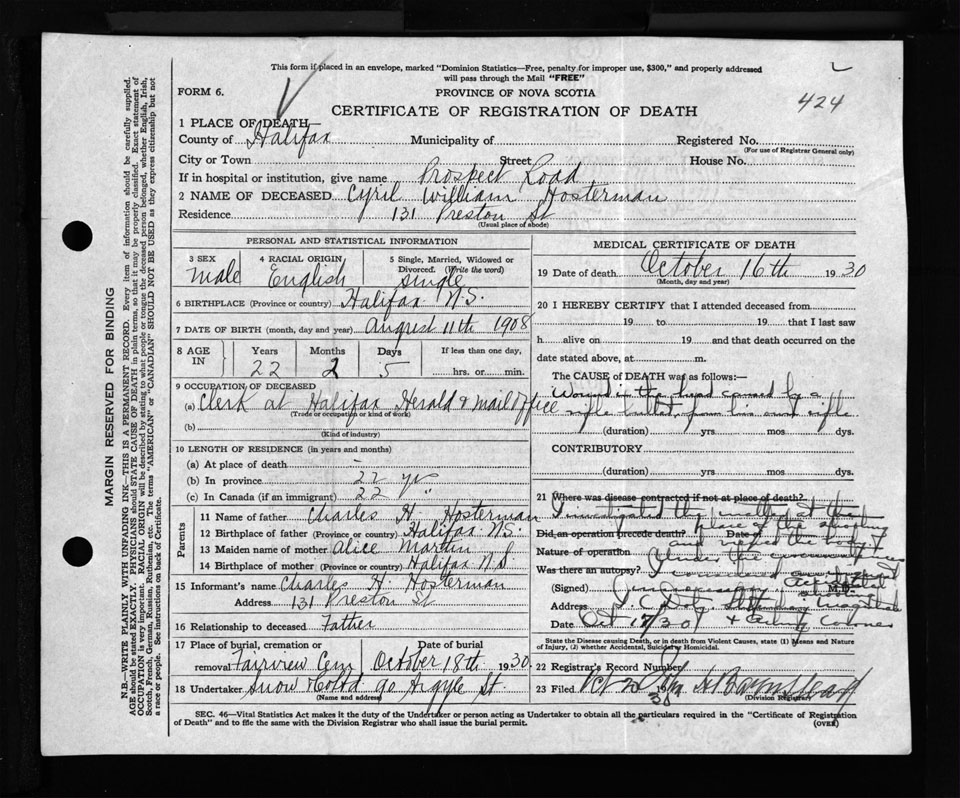 This form if placed in an envelope, marked "Dominion Statistics—Free, penalty for improper use, $300," and properly addressed
will pass through the Mail "FREE"
FORM 6.
PROVINCE OF NOVA SCOTIA
424
CERTIFICATE OF REGISTRATION OF DEATH
1 PLACE OF DEATH—
County of Halifax Municipality of Registered No.
(For use of Registrar General only)
City or Town Street House No.
If in hospital or institution, give name Prospect Road
2 NAME OF DECEASED Cyril William Hosterman
Residence 131 Preston St
(Usual place of abode)
MARGIN RESERVED FOR BINDING
N.B.—WRITE PLAINLY WITH UNFADING INK—THIS IS A PERMANENT RECORD. Every item of information should be carefully supplied.
AGE should be stated EXACTLY. PHYSICIANS should STATE CAUSE OF DEATH in plain terms, so that it may be properly classified. Exact statement of
OCCUPATION is very important. RACIAL ORIGIN will be described by stating to what people or tongue the deceased person belonged, whether English, Irish,
Scotch, French, German, Russian, Ruthenian, etc. The terms "AMERICAN" or "CANADIAN" SHOULD NOT BE USED as they express citizenship but not
a race or people. See instructions on back of Certificate.
PERSONAL AND STATISTICAL INFORMATION
3 SEX 4 RACIAL ORIGIN 5 Single, Married, Widowed or
Divorced. (Write the word)
Male English Single
6 BIRTHPLACE (Province or country) Halifax N.S.
7 DATE OF BIRTH (month, day and year) August 11th 1908
8 AGE IN Years Months Days If less than one day,
22 2 5 hrs. or min.
9 OCCUPATION OF DECEASED
(a) Clerk at Halifax Herald & Mail Office
(Trade or occupation or kind of work)
(b)
(Kind of industry)
10 LENGTH OF RESIDENCE (in years and months)
(a) At place of death -
(b) In province 22 yrs
(c) In Canada (if an immigrant) 22 "
Parents
11 Name of father Charles H. Hosterman
12 Birthplace of father (Province or country) Halifax N.S.
13 Maiden name of mother Alice Martin
14 Birthplace of mother (Province or country) Halifax N.S
15 Informant's name Charles H. Hosterman
Address 131 Preston St
16 Relationship to deceased Father
17 Place of burial, cremation or Date of burial
removal Fairview Cem October 18th 1930
18 Undertaker Snow & Co Ltd 90 Argyle St.
(Name and address)
MEDICAL CERTIFICATE OF DEATH
19 Date of death October 16th 1930
(Month, day and year)
20 I HEREBY CERTIFY that I attended deceased from
19 to 19 that I last saw
h alive on 19 and that death occurred on the
date stated above, at m.
The CAUSE of DEATH was as follows:—
Wound in the head caused by a
rifle bullet from his own rifle
(duration) yrs. mos dys.
CONTRIBUTORY
(duration) yrs. mos dys.
21 Where was disease contracted if not at place of death?
I investigated the matter at the
Did an operation precede death? Date of
place of the shooting
and viewed the body &
Nature of operation
Under the
Was there an autopsy?
Accidental
(Signed) M.D.
Address Magistrate
Date Oct 17/30 & Acting Coroner
State the Disease causing Death, or in death from Violent Causes, state (1) Means and Nature
of Injury, (2) whether Accidental, Suicidal or Homicidal.
22 Registrar's Record Number
23 Filed Oct 19 30
(Division Registrar)
SEC. 46—Vital Statistics Act makes it the duty of the Undertaker or person acting as Undertaker to obtain all the particulars required in the "Certificate of Registration
of Death" and to file the same with the Division Registrar who shall issue the burial permit.
(OVER)